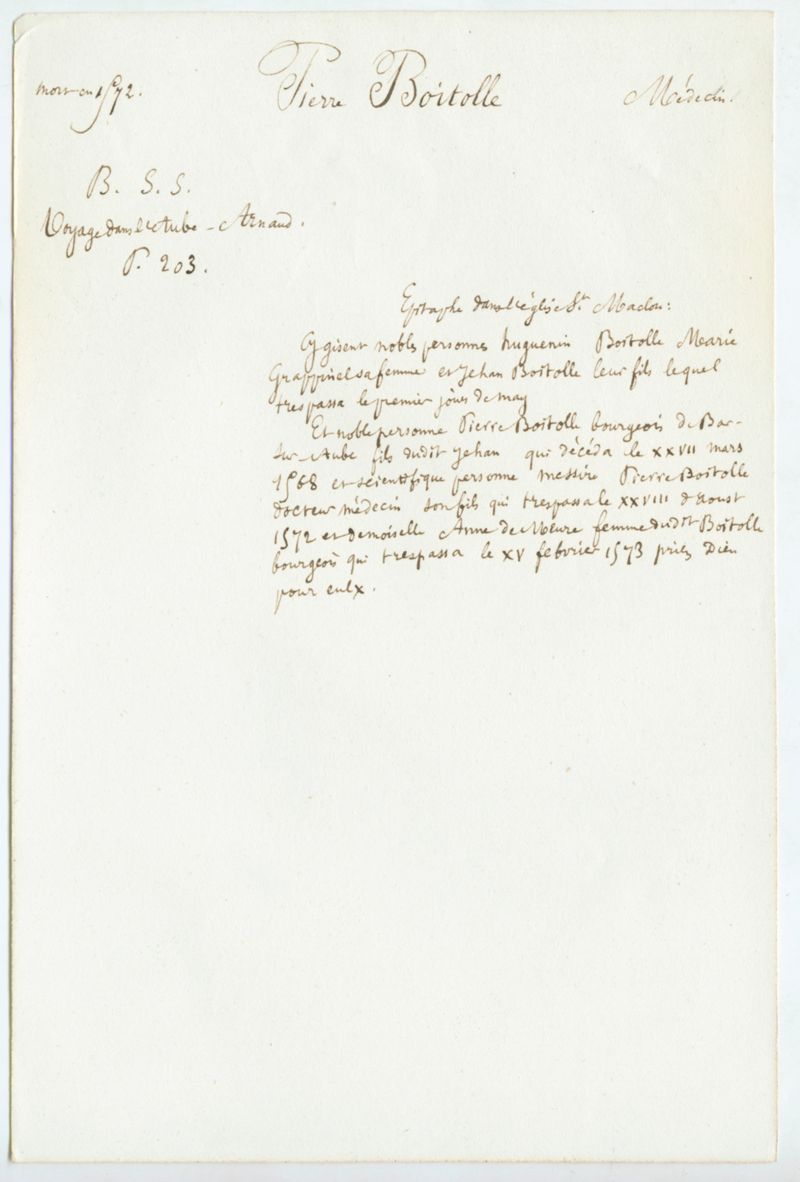 mort en 1572.
Pierre Boitolle
Médecin.
B. S. S.
Voyage dans l'Aube - Arnaud.
P. 203.
Epitaphe dans l'église St. Maclou:
Cy gisent nobles personnes huguenin Boitolle Marie
Grappinel sa femme et Jehan Boitolle leur fils lequel
trespassa le premier jour de may
Et noble personne Pierre Boitolle bourgeois de Bar-
sur-Aube fils dudit Jehan qui décéda le XXVII mars
1568 et scientifique personne messire Pierre Boitolle
docteur médecin son fils qui trespassa le XXVIII d'aoust
1572 et demoiselle Anne de Meure femme dudit Boitolle
bourgeois qui trespassa le XV febvrier 1573 priez Dieu
pour eulx.